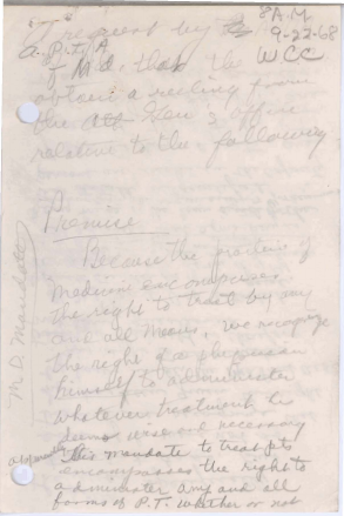 8 A.M
9-22-68
A request by
A.P.T.A
of Md. that the WCC
obtain a reeling from
the Att Gen's office
relative to the following
Premise
Because the practice of
medicine encompasses
the right to treat by any
and all means, we recognize
the right of a physician
himself to administer
whatever treatment he
deems wise and necessary
apparently this mandate to treat pts
encompasses the right to
administer any and all
forms of P.T. whether or not
M.D. Mandate